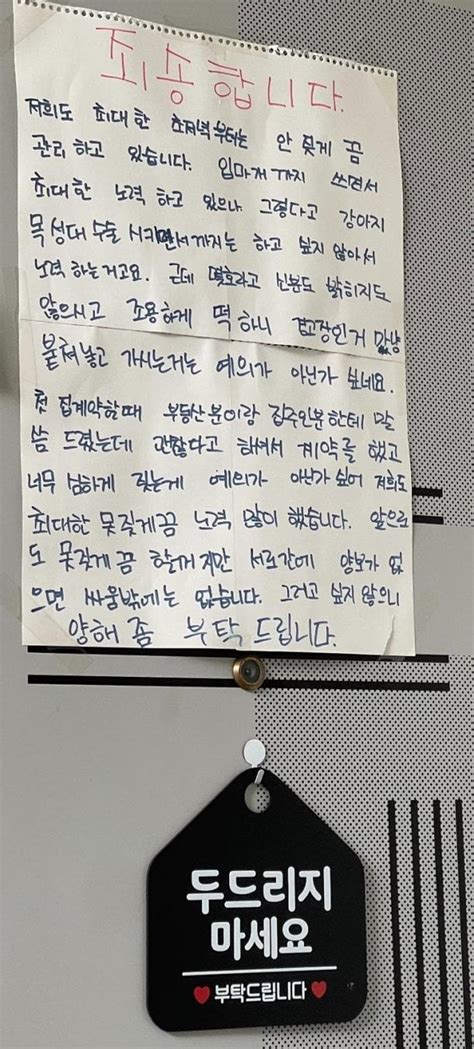 죄송합니다.
저희도 최대한 초저녁부터는 안 짖게끔
관리 하고 있습니다. 입마개까지 쓰면서
최대한 노력 하고 있으나 그렇다고 강아지
목성대 수술 시키면서까지는 하고 싶지 않아서
노력 하는거고요. 근데 몇호라고 신분도 밝히지도
않으시고 조용하게 떡 하니 경고장인거 마냥
붙쳐놓고 가시는거는 예의가 아닌가 싶네요.
첫 집계약할때 부동산분이랑 집주인분한테 말
씀 드렸는데 괜찮다고 하셔서 계약를 했고
너무 심하게 짖는게 예의가 아닌가 싶어 저희도
최대한 못짖게끔 노력 많이 했습니다. 앞으로
도 못짖게끔 할꺼지만 서로간에 양보가 없
으면 싸움밖에는 없습니다. 그러고 싶지 않으니
양해 좀 부탁드립니다.
두드리지
마세요
부탁드립니다